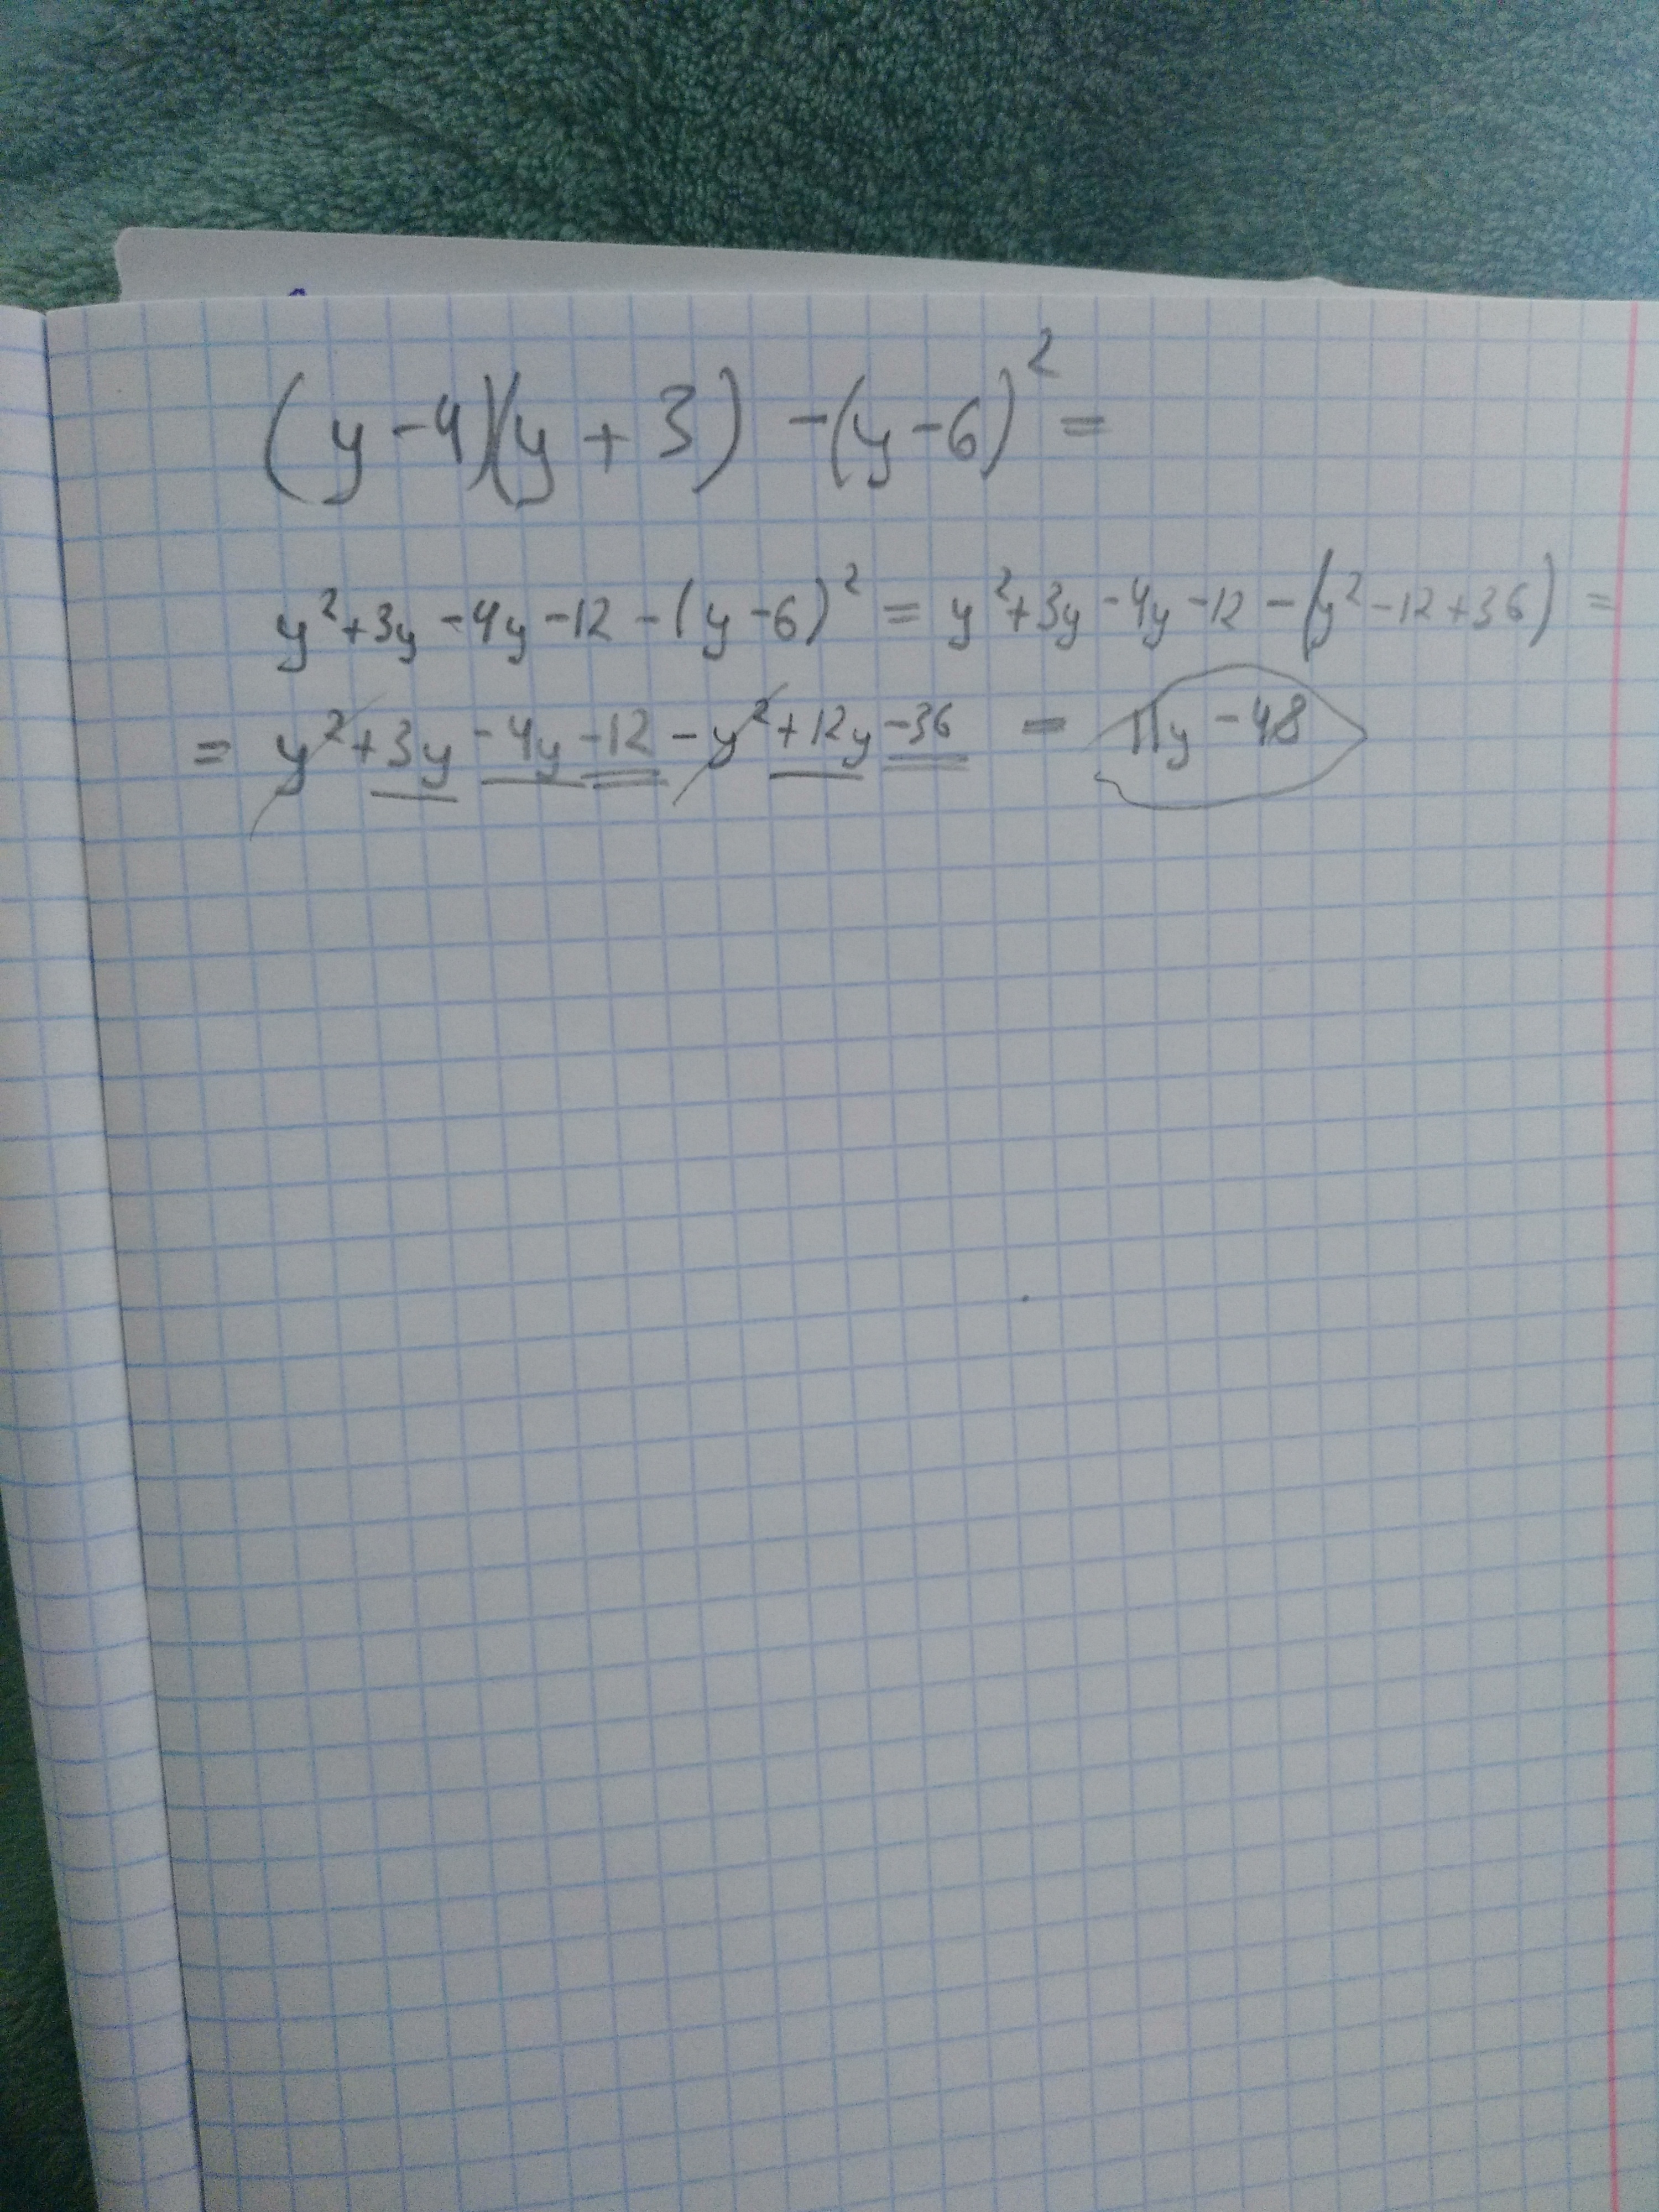 (y-4)(y+3)-(y-6)² =
y²+3y-4y-12-(y-6)² = y²+3y-4y-12-(y²-12+36) =
= y²+3y-4y-12-y²+12y-36 = 11y-48